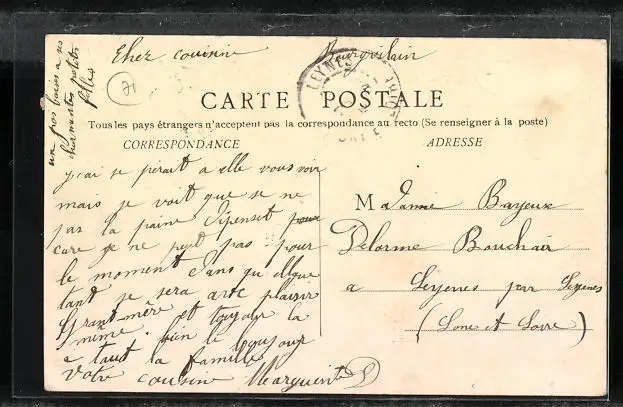 Cher cousin Bourgvilain
un gros baiser a vos
charmantes petites
filles
71
LEYNES
CARTE POSTALE
Tous les pays étrangers n'acceptent pas la correspondance au recto (Se renseigner à la poste)
CORRESPONDANCE
ADRESSE
j'ai se perait a elle vous voir
mais je voit que se ne
pas la paine d'y penset pour
care je ne peut pas pour
le moment dans qu elque
tant se sera avec plaisir
Grant mère et toujour la
même. bien le bonjour
a tout la famille
Votre cousine Marguerite
Madame Bayeux
Delorme Bouchair
a Leynes par Leynes
(Sone et Loire)